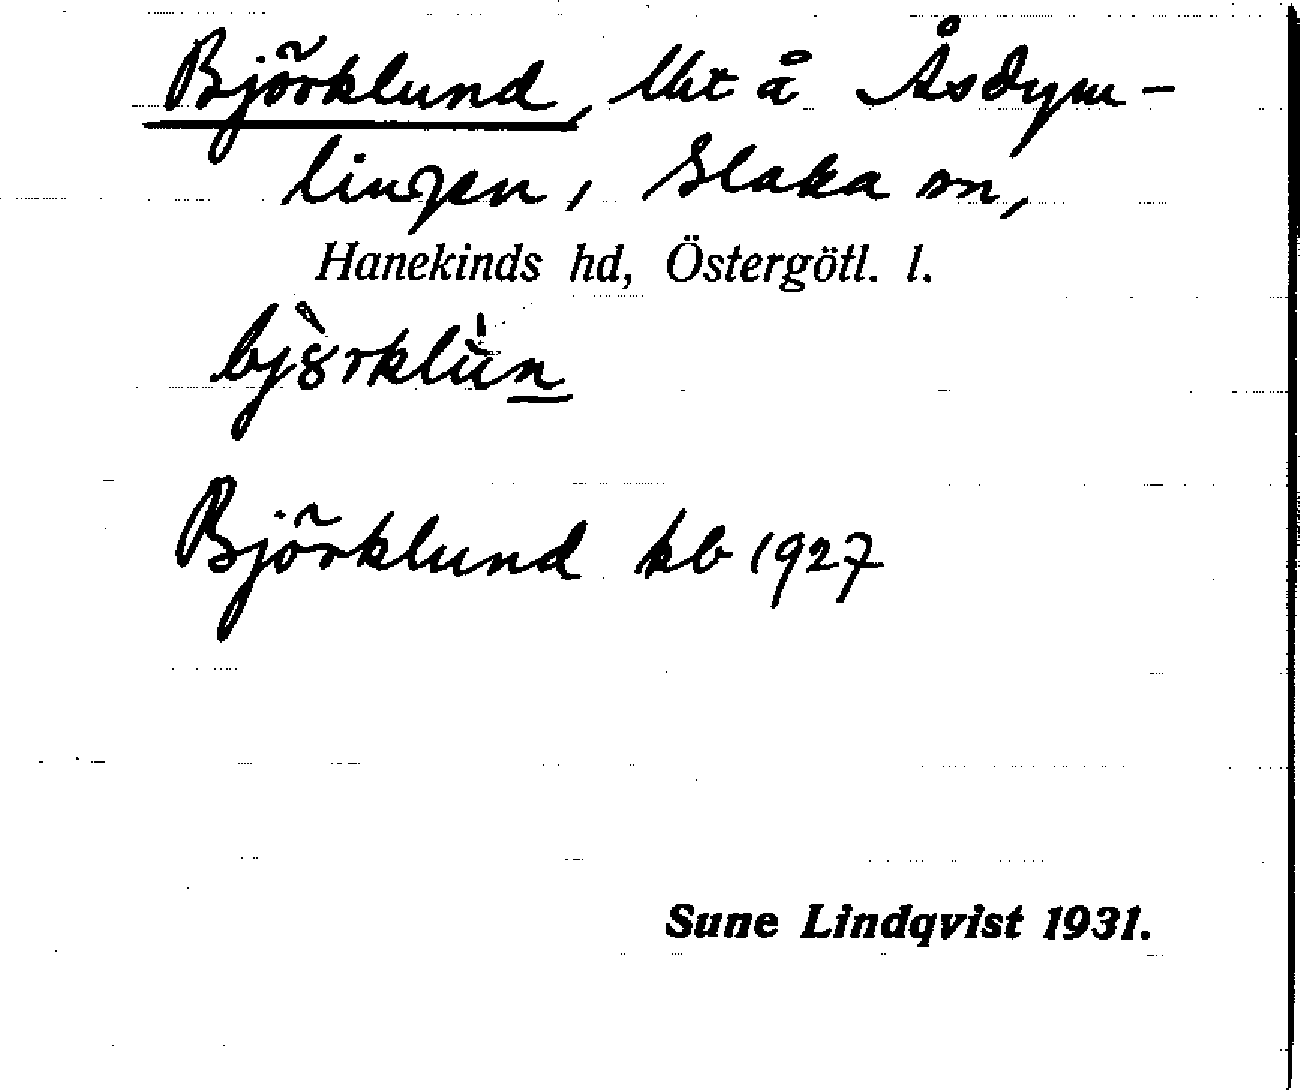 Björklund, lht å Åsdym-
lingen, Slaka sn,
Hanekinds hd, Östergötl. l.
Björklund kb 1927
Sune Lindqvist 1931.